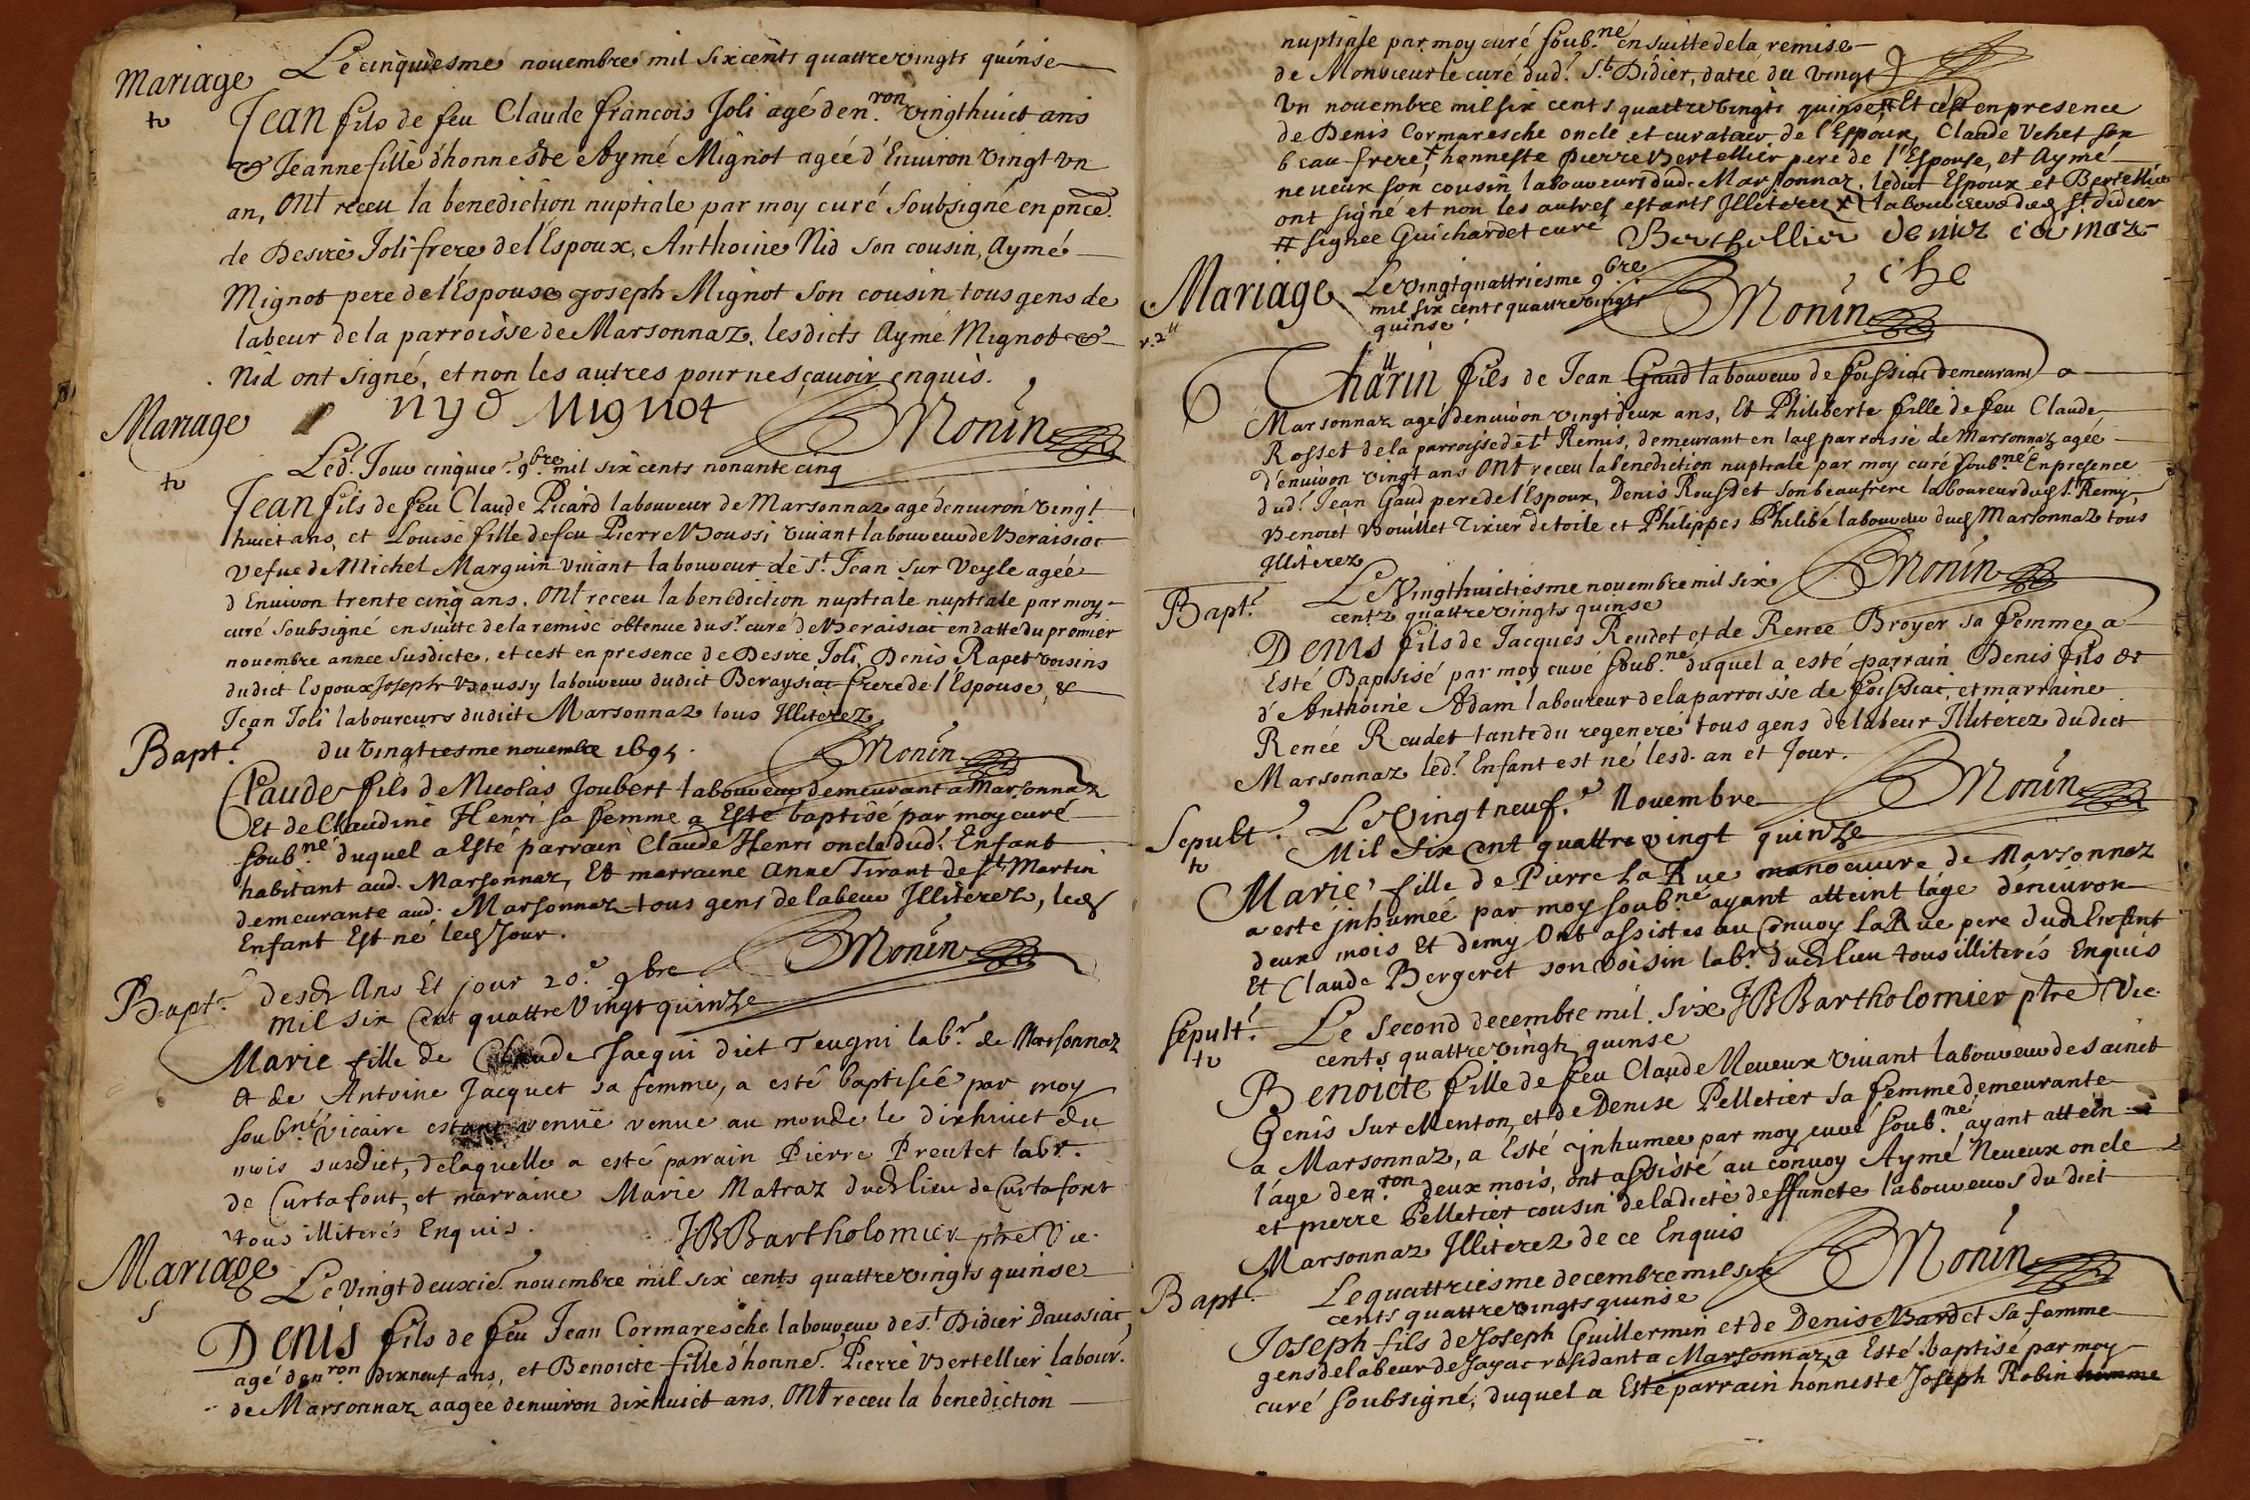 Mariage
Le cinquiesme novembre mil six cents quattre vingts quinse
Jean fils de feu Claude francois Joli agé den.ron vingthuict ans
& Jeanne fille d'honneste Aymé Mignot agéé d'Environ vingt vn
an, Ont receu la benediction nuptiale par moy curé Soubsigné en pnce.
de Desiré Joli frere de l'Espoux, Anthoine Nid son cousin, Aymé
Mignot pere de l'Espouse Joseph Mignot son cousin tous gens de
labeur de la parroisse de Marsonnaz. lesdicts Aymé Mignot &
Nid ont signé, et non les autres pour ne sçauoir enquis.
nyd Mignot Monin
Mariage
Led. Jour cinquie. 9bre mil six cents nonante cinq
Jean fils de feu Claude Picard labouveur de Marsonnaz agé denuiron vingt
huict ans, et Louise fille de feu Pierre Voussi viuant labouveur de Beraisiac
vefue de Michel Marguin viuant labouveur de St. Jean sur Veyle agéé
d'Enuiron trente cinq ans. Ont receu la benediction nuptiale nuptiale par moy
curé Soubsigné en suitte de la remise obtenue du sr. curé de Beraisiac en datte du premier
novembre annee susdicte, et cest en presence de Desire Joli, Denis Rapet voisins
dudict Espoux Joseph Voussy labouveur dudict Beraysiac frere de l'Espouse, &
Jean Joli laboureurs dudict Marsonnaz tous Illiterez
Monin
Bapt.
du vingtiesme novembre 1695.
Claude fils de Nicolas Joubert labouveur demeurant a Marsonnaz
Et de Claudine Henri sa femme a Esté baptisé par moy curé
soub.né duquel a Esté parrain Claude Henri oncle dud. Enfant
habitant aud. Marsonnaz, Et marraine Anne Tirant de St Martin
demeurante aud. Marsonnaz tous gens de labeur Illiterez, led
Enfant Est né led Jour.
Monin
Bapt.
desd Ans Et jour 20.e 9bre
mil six Cent quattre Vingt quinze
Marie fille de Claude Jacqui dict Teugni labr. de Marsonnaz
et de Antoine Jacquet sa femme, a esté baptisée par moy
soub.né vicaire estant venuë venue au monde le dixhuict du
mois susdict, de laquelle a esté parrain Pierre Preutet labr.
de Curtafont, et marraine Marie Matraz dud lieu de Curtafont
tous illiterés Enquis.
JBBartholomier ptre Vic.
Mariage
Le vingt deuxie. novembre mil six cents quattre vingts quinse
Denis fils de feu Jean Cormaresche labouveur de St. Didier Daussiac,
agé den.ron dixneuf ans, et Benoicte fille d'honne. Pierre Bertellier labour.
de Marsonnaz aagée denuiron dixhuict ans. Ont receu la benediction
nuptiale par moy curé soub.né en suitte de la remise
de Monsieur le curé dud. St. Didier, datéé du vingt
vn novembre mil six cents quattre vingts quinse, # Et c'est en presence
de Denis Cormaresche oncle et curataeur de l'Espoux, Claude Vehet son
beau-frere, honneste Pierre Bertellier pere de l'Espouse, et Aymé
neveux son cousin labouveurs dud. Marsonnaz. ledict Espoux et Bertellier
ont signé et non les autres estants Illiterez labouveurs dud St didier
# signee Guichardet curé
Berthellier denis cormaz
che
Monin
Mariage
Le vingtquattriesme 9bre
mil six cents quattre vingts
quinse
Tharin fils de Jean Gaud labouveur de foissiac demeurant a
Marsonnaz agé denuiron vingt deux ans, Et Philiberte fille de feu Claude
Rosset de la parroisse de St Remis, demeurant en lad parroisse de Marsonnaz agée
d'enuiron vingt ans Ont receu la benediction nuptiale par moy curé soub.né En presence
dud. Jean Gaud pere de l'Espoux, Denis Rousset son beaufrere laboureur dud St. Remy,
Benoict Bouillet Tixier de toile et Philippes Philibé labouveur dud Marsonnaz tous
Illiterez
Monin
Bapt.
Le Vingthuictiesme novembre mil six
cents quattre vingts quinse
Denis fils de Jacques Reudet et de Renee Broyer sa femme a
Esté Baptisé par moy curé soub.né duquel a esté parrain Denis fils
d'Anthoine Adam laboureur de la parroisse de foissiac, et marraine
Renée Reudet tante du regeneré tous gens de labeur Illiterez dudict
Marsonnaz led. Enfant est né lesd. an et Jour.
Monin
Sepult.
Le Vingt neuf.e Novembre
Mil Six Cent quattre vingt quinze
Marie fille de Pierre La Rue manoeuure de Marsonnaz
a este inhumeé par moy soub.né ayant atteint láge denuiron
deux mois Et demy Ont assistés au Convoy La Rue pere dud Enfant
Et Claude Bergeret son voisin labr. dud lieu tous illiterés Enquis
JBBartholomier ptre Vic.
Sepult.
Le second decembre mil. six
cents quattre vingts quinse
Benoicte fille de feu Claude Neveux viuant labouveur de sainct
Genis sur Menton, et de Denise Pelletier sa femme demeurante
a Marsonnaz, a Esté inhumee par moy curé soub.né ayant attein
láge den.ron deux mois, ont assisté au convoy Aymé Neueux oncle
et pierre Pelletier cousin de la dicte deffuncte labouveurs du dict
Marsonnaz Illiterez de ce Enquis
Monin
Bapt.
Le quattriesme decembre mil six
cents quattre vingts quinse
Joseph fils de Joseph Guillermin et de Denise Bardet sa femme
gens de labeur de Jayac residant a Marsonnaz, a Esté baptisé par moy
curé soubsigné, duquel a Esté parrain honneste Joseph Robin homme